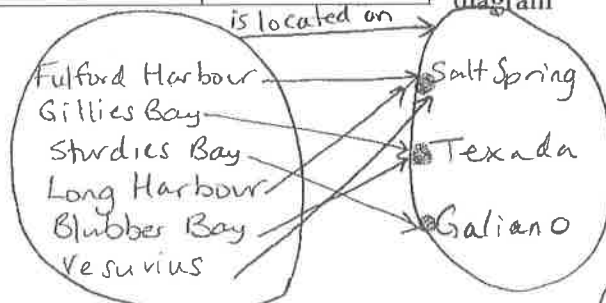 diagram
is located on
Fulford Harbour
Gillies Bay
Sturdies Bay
Long Harbour
Blubber Bay
Vesuvius
Salt Spring
Texada
Galiano